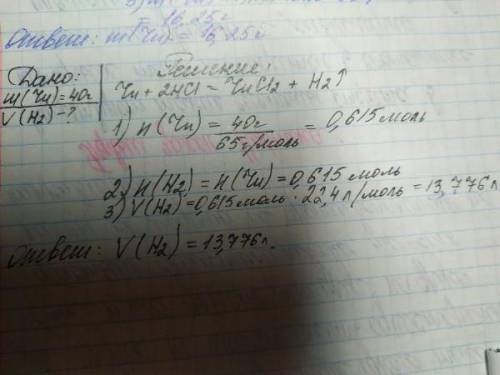 = 16,25г
Ответ: m(Zn) = 16,25г
Дано:
m(Zn)=40г
V(H2)-?
Решение:
Zn + 2HCl = ZnCl2 + H2↑
1) n(Zn) = 40г / 65г/моль = 0,615 моль
2) n(H2) = n(Zn) = 0,615 моль
3) V(H2) = 0,615 моль · 22,4 л/моль = 13,776 л
Ответ: V(H2) = 13,776 л.